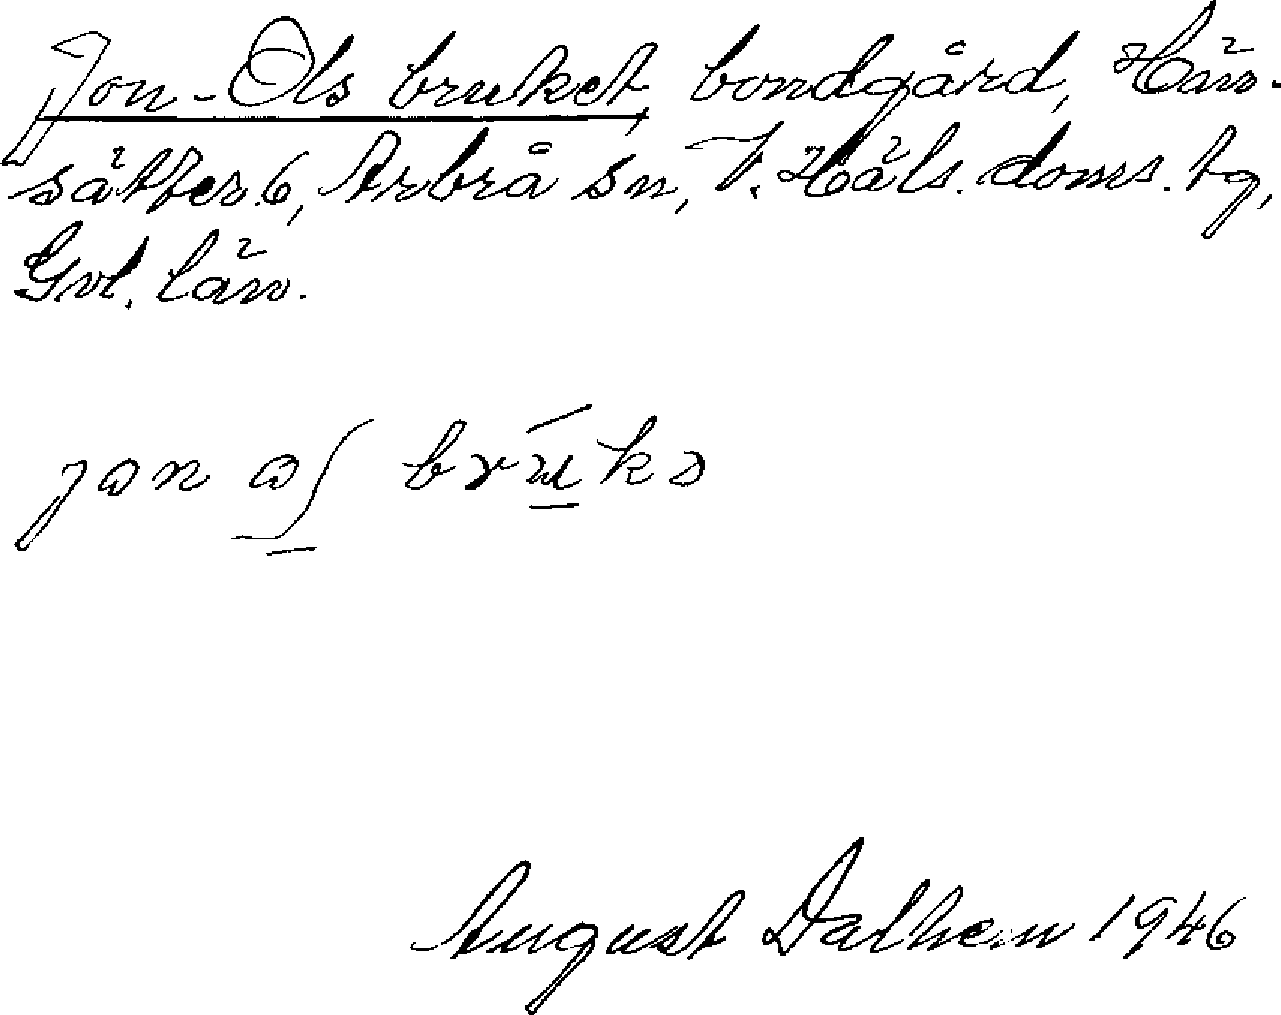 Jon-Ols bruket, bondgård, Hän-
sätter 6, Arbrå sn, V. Häls. doms. tg,
Gvl. län.
jon
August Dalhem 1946